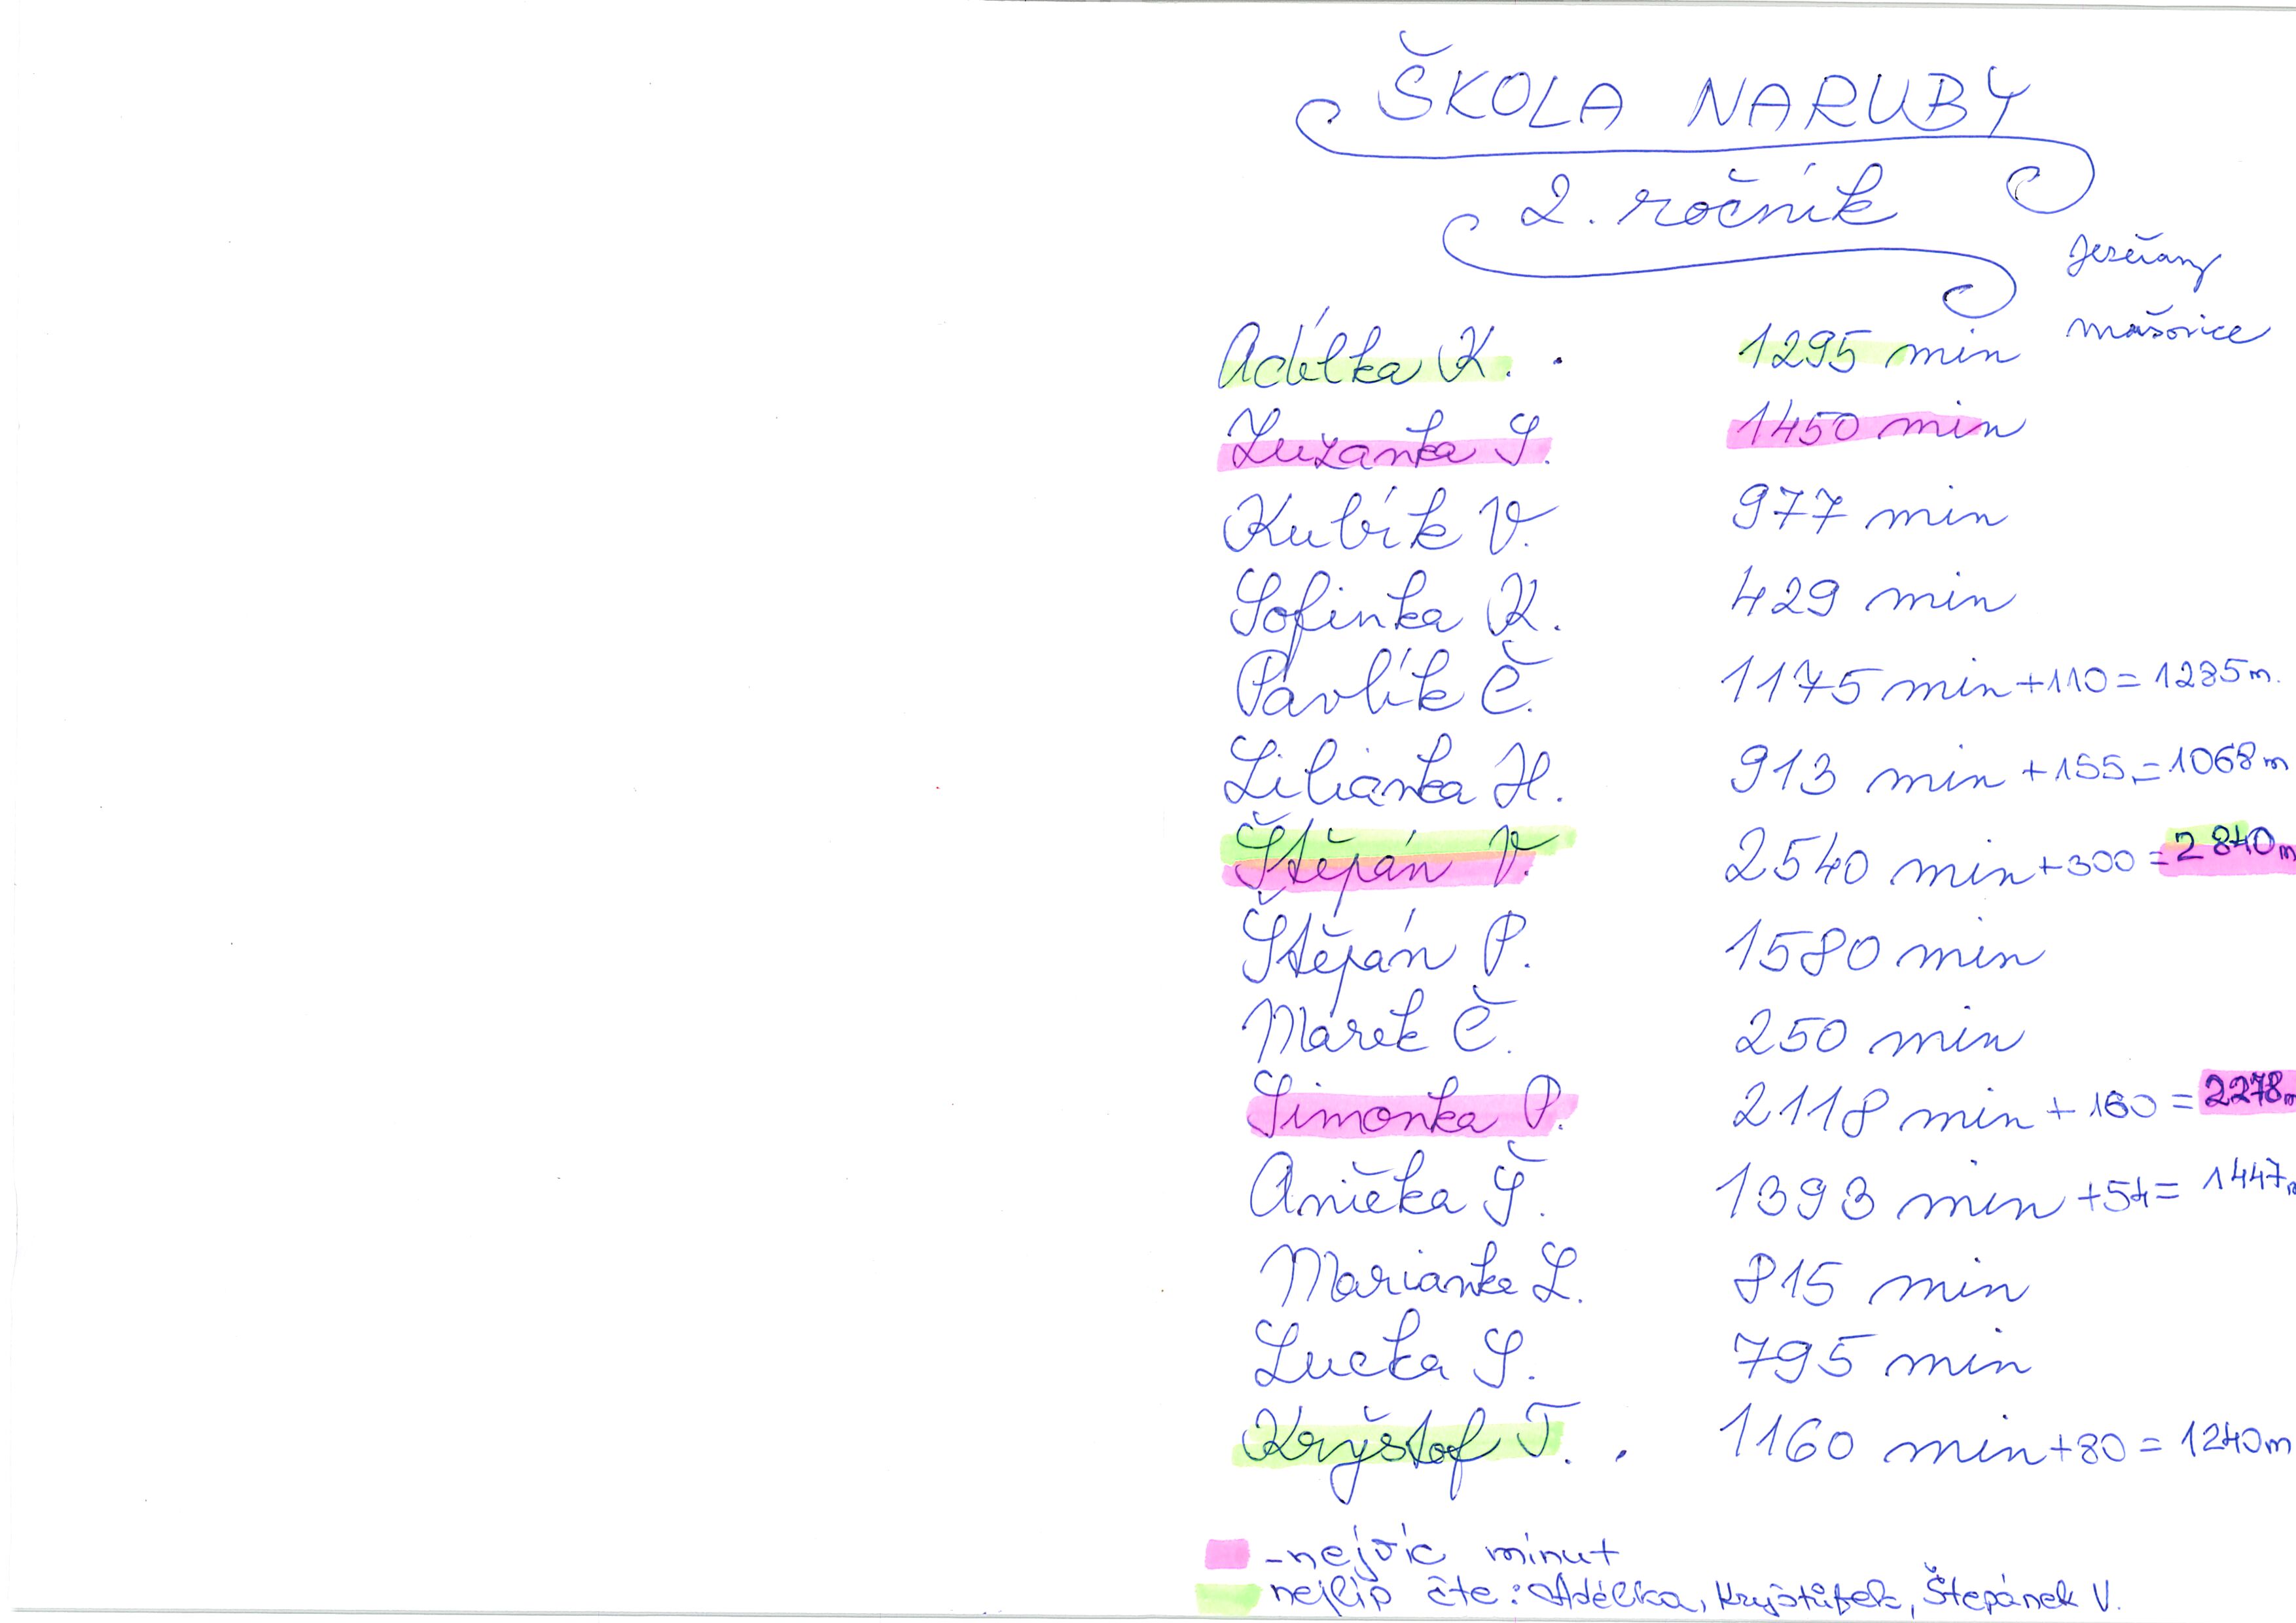 ŠKOLA NARUBY
2. ročník
Jezeřany
Mašovice
Adélka K. 1295 min
Zuzanka S. 1450 min
Kubík V. 977 min
Sofinka K. 429 min
Pavlík Č. 1175 min +110 = 1285 m.
Lilianka H. 913 min +155 = 1068 m
Štěpán V. 2540 min +300 = 2840 m
Štěpán P. 1580 min
Marek Č. 250 min
Simonka P. 2118 min + 160 = 2278 m
Anička Š. 1393 min +54 = 1447 m
Marianka L. 815 min
Lucka S. 795 min
Kryštof T. 1160 min +80 = 1240 m
- nejvíc minut
nejlíp čte: Adélka, Kryštůfek, Štěpánek V.